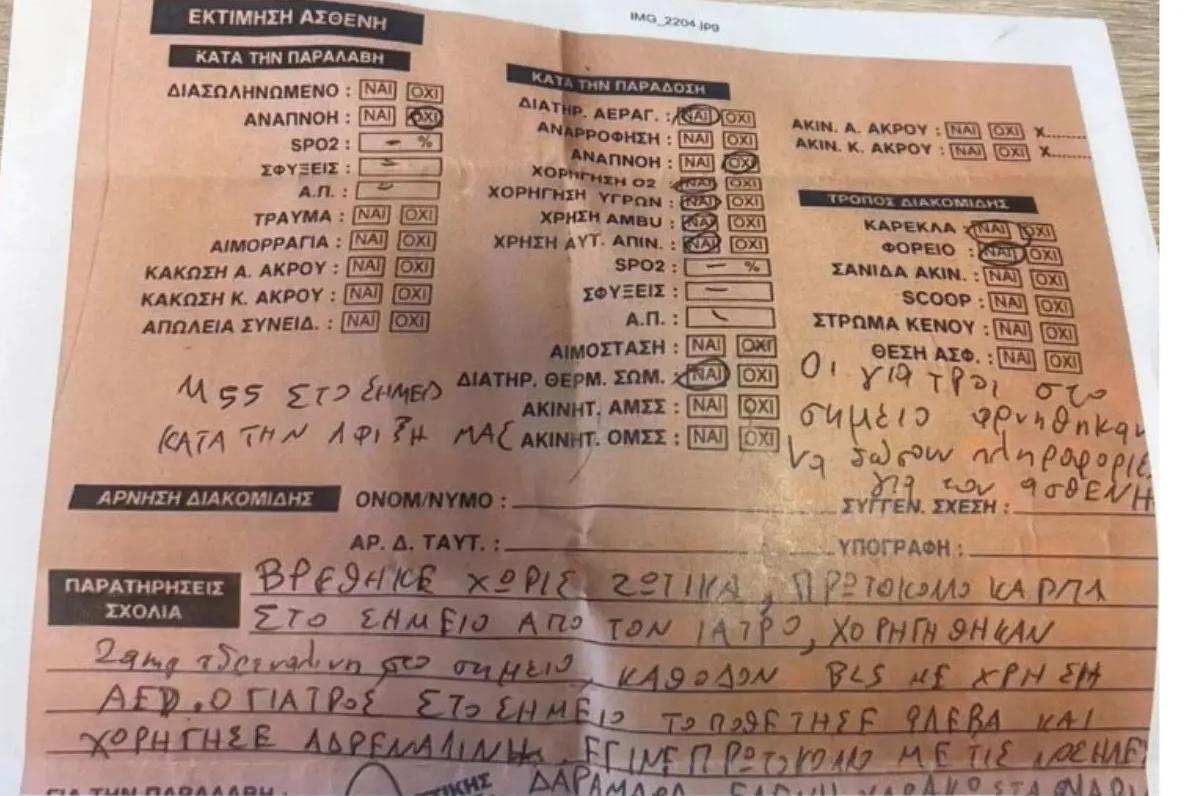 IMG_2204.jpg
ΕΚΤΙΜΗΣΗ ΑΣΘΕΝΗ
ΚΑΤΑ ΤΗΝ ΠΑΡΑΛΑΒΗ
ΔΙΑΣΩΛΗΝΩΜΕΝΟ : ΝΑΙ ΟΧΙ
ΑΝΑΠΝΟΗ : ΝΑΙ ΟΧΙ
SPO2 : – %
ΣΦΥΞΕΙΣ : –
Α.Π. : –
ΤΡΑΥΜΑ : ΝΑΙ ΟΧΙ
ΑΙΜΟΡΡΑΓΙΑ : ΝΑΙ ΟΧΙ
ΚΑΚΩΣΗ Α. ΑΚΡΟΥ : ΝΑΙ ΟΧΙ
ΚΑΚΩΣΗ Κ. ΑΚΡΟΥ : ΝΑΙ ΟΧΙ
ΑΠΩΛΕΙΑ ΣΥΝΕΙΔ. : ΝΑΙ ΟΧΙ
ΣΤΟ ΣΗΜΕΙΟ
ΚΑΤΑ ΤΗΝ ΑΦΙΞΗ ΜΑΣ
ΚΑΤΑ ΤΗΝ ΠΑΡΑΔΟΣΗ
ΔΙΑΤΗΡ. ΑΕΡΑΓ. : ΝΑΙ ΟΧΙ
ΑΝΑΡΡΟΦΗΣΗ : ΝΑΙ ΟΧΙ
ΑΝΑΠΝΟΗ : ΝΑΙ ΟΧΙ
ΧΟΡΗΓΗΣΗ Ο2 : ΝΑΙ ΟΧΙ
ΧΟΡΗΓΗΣΗ ΥΓΡΩΝ : ΝΑΙ ΟΧΙ
ΧΡΗΣΗ AMBU : ΝΑΙ ΟΧΙ
ΧΡΗΣΗ ΑΥΤ. ΑΠΙΝ. : ΝΑΙ ΟΧΙ
SPO2 : – %
ΣΦΥΞΕΙΣ : –
Α.Π. : –
ΑΙΜΟΣΤΑΣΗ : ΝΑΙ ΟΧΙ
ΔΙΑΤΗΡ. ΘΕΡΜ. ΣΩΜ. : ΝΑΙ ΟΧΙ
ΑΚΙΝΗΤ. ΑΜΣΣ : ΝΑΙ ΟΧΙ
ΑΚΙΝΗΤ. ΟΜΣΣ : ΝΑΙ ΟΧΙ
ΑΚΙΝ. Α. ΑΚΡΟΥ : ΝΑΙ ΟΧΙ Χ........
ΑΚΙΝ. Κ. ΑΚΡΟΥ : ΝΑΙ ΟΧΙ Χ........
ΤΡΟΠΟΣ ΔΙΑΚΟΜΙΔΗΣ
ΚΑΡΕΚΛΑ : ΝΑΙ ΟΧΙ
ΦΟΡΕΙΟ : ΝΑΙ ΟΧΙ
ΣΑΝΙΔΑ ΑΚΙΝ. : ΝΑΙ ΟΧΙ
SCOOP : ΝΑΙ ΟΧΙ
ΣΤΡΩΜΑ ΚΕΝΟΥ : ΝΑΙ ΟΧΙ
ΘΕΣΗ ΑΣΦ. : ΝΑΙ ΟΧΙ
Οι γιατροι στο
σημειο αρνηθηκαν
να δωσουν πληροφοριες
για τον ασθΕΝΗ
ΑΡΝΗΣΗ ΔΙΑΚΟΜΙΔΗΣ ΟΝΟΜ/ΝΥΜΟ : ΣΥΓΓΕΝ. ΣΧΕΣΗ :
ΑΡ. Δ. ΤΑΥΤ. : ΥΠΟΓΡΑΦΗ :
ΠΑΡΑΤΗΡΗΣΕΙΣ ΣΧΟΛΙΑ
ΒΡΕΘΗΚΕ ΧΩΡΙΣ ΖΩΤΙΚΑ, ΠΡΩΤΟΚΟΛΟ ΚΑΡΠΑ
ΣΤΟ ΣΗΜΕΙΟ ΑΠΟ ΤΟΝ ΙΑΤΡΟ, ΧΟΡΗΓΗΘΗΚΑΝ
αδρεναλινη στο σημειο, ΚΑΘΟΔΟΝ BLS ΜΕ ΧΡΗΣΗ
AED. Ο ΓΙΑΤΡΟΣ ΣΤΟ ΣΗΜΕΙΟ ΤΟΠΟΘΕΤΗΣΕ ΦΛΕΒΑ ΚΑΙ
ΧΟΡΗΓΗΣΕ ΑΔΡΕΝΑΛΙΝΗ. ΕΓΙΝΕ ΠΡΩΤΟΚΟΛΟ ΜΕ ΤΙΣ
ΓΙΑ ΤΗΝ ΠΑΡΑΛΑΒΗ :